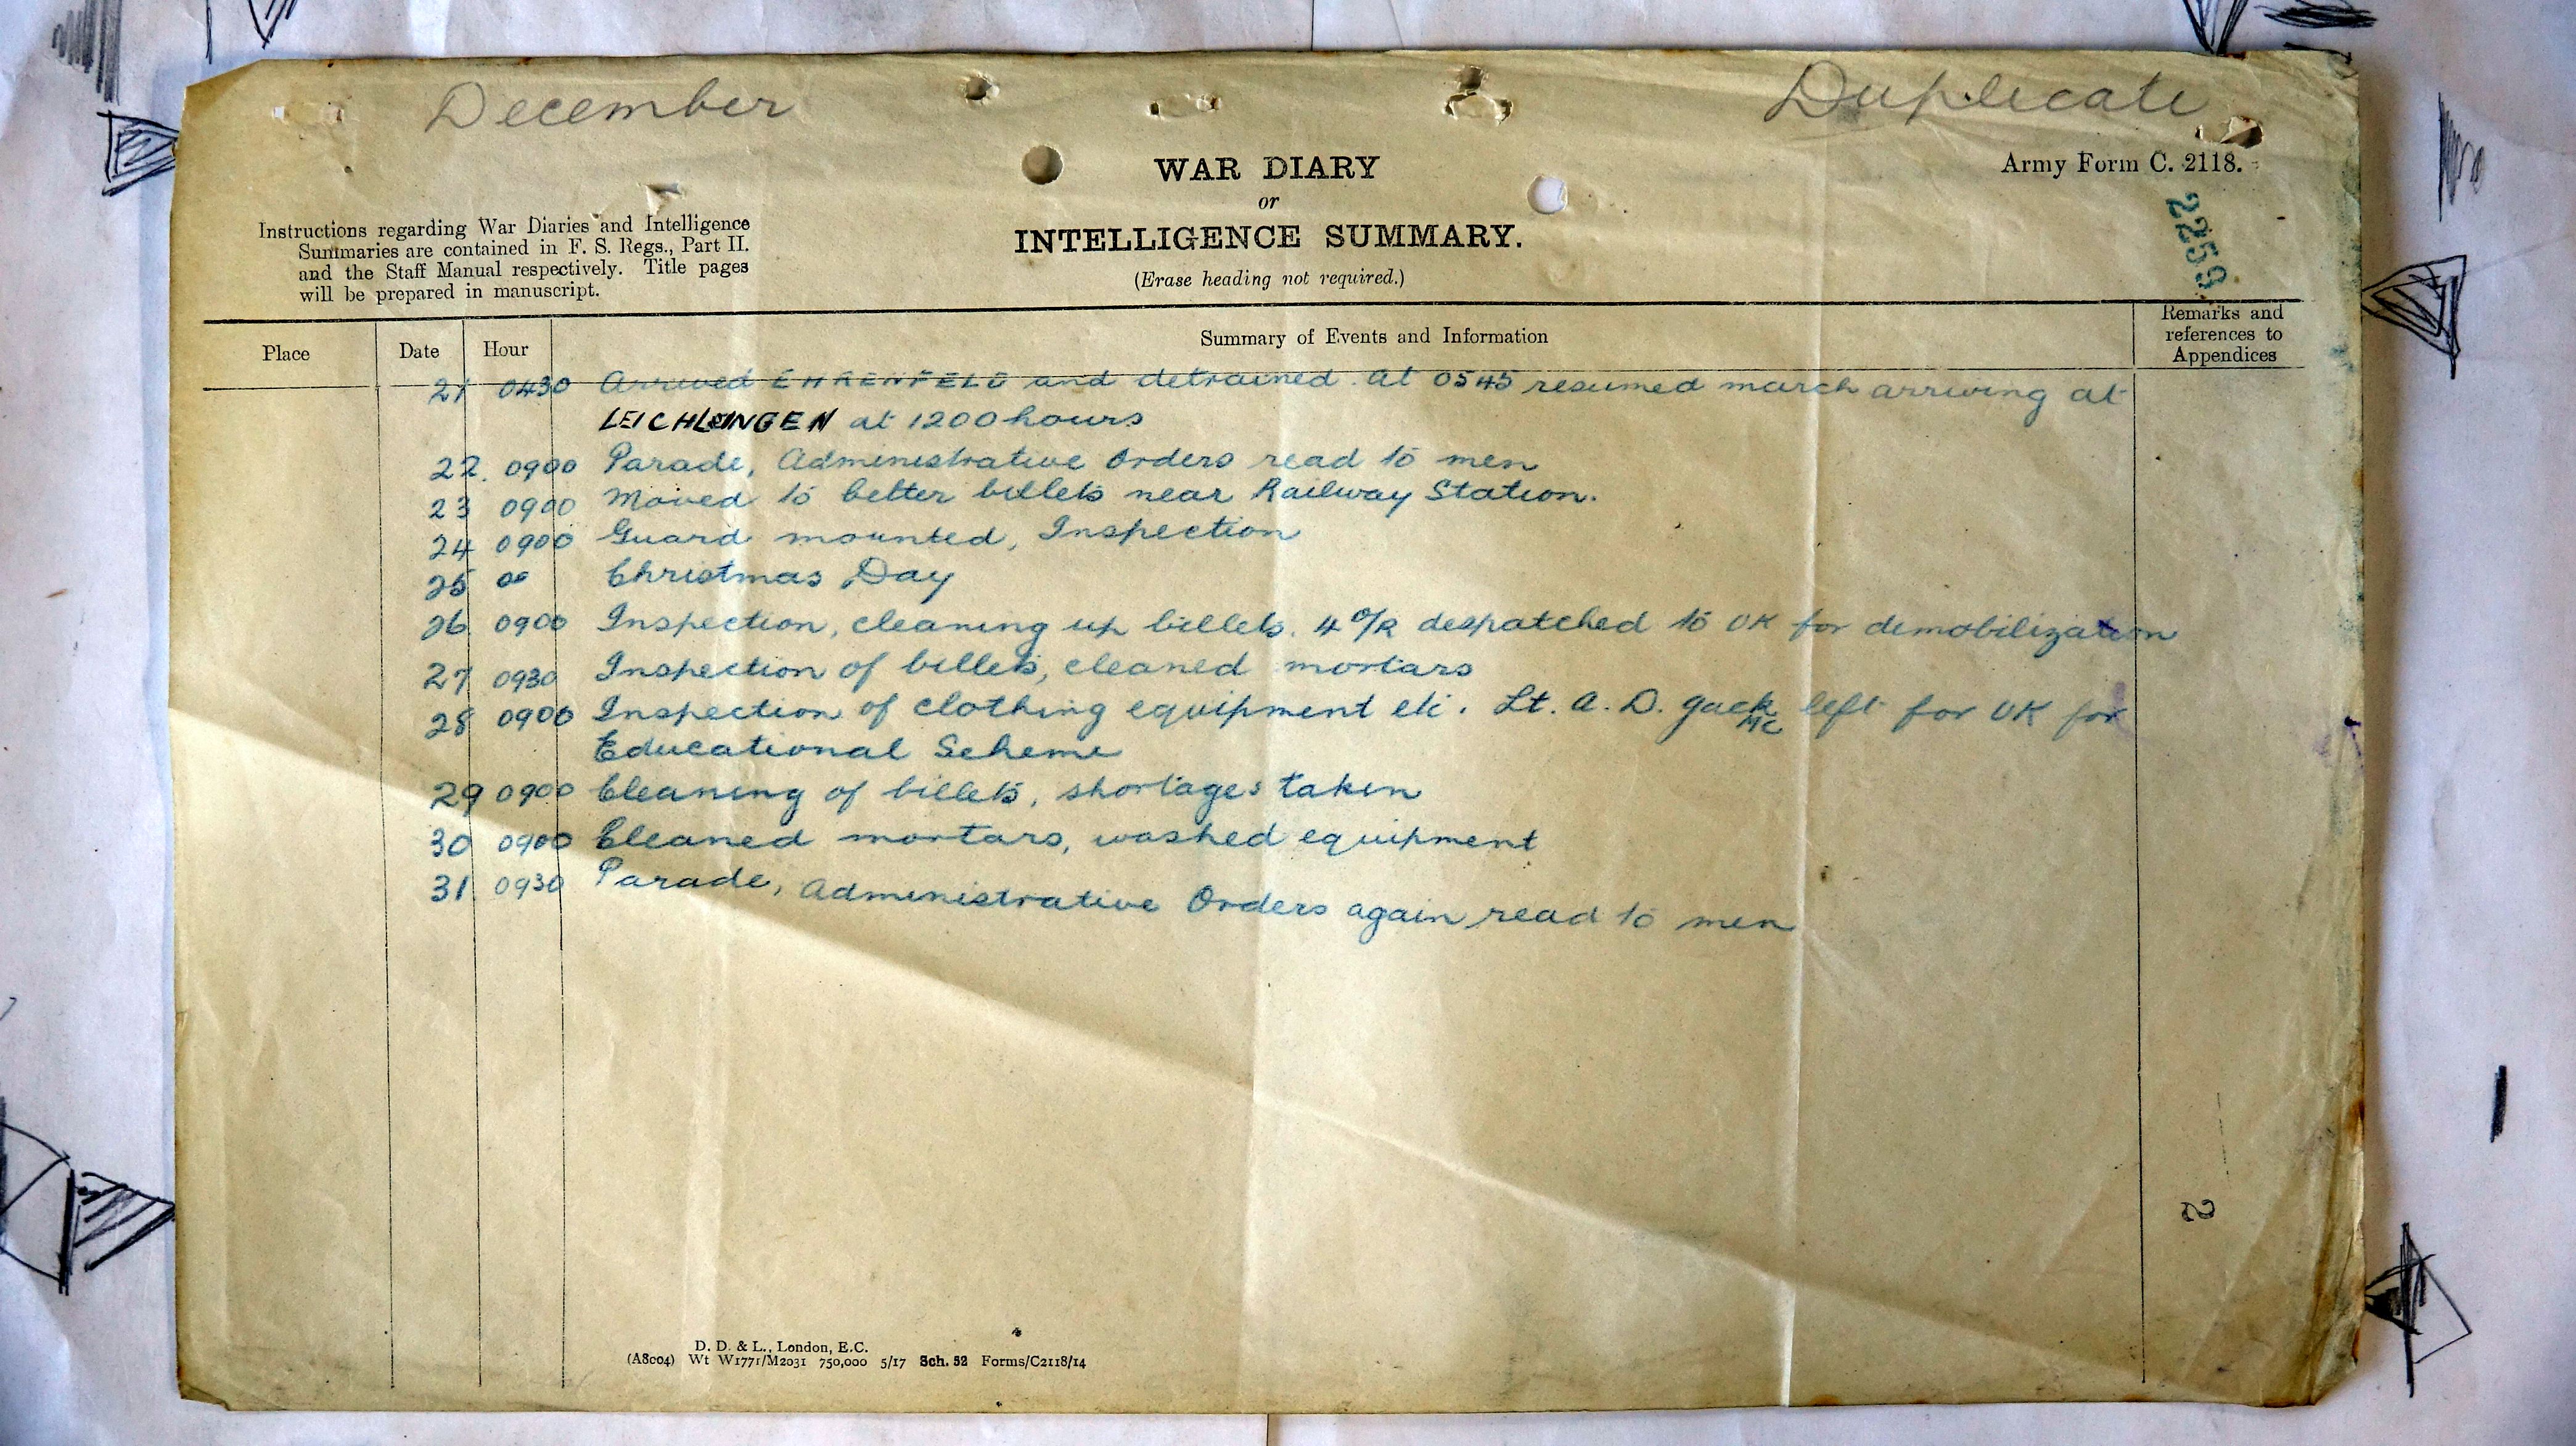 December
Duplicate
WAR DIARY
Army Form C. 2118.
or
INTELLIGENCE SUMMARY.
(Erase heading not required.)
2259
Instructions regarding War Diaries and Intelligence
Summaries are contained in F. S. Regs., Part II.
and the Staff Manual respectively. Title pages
will be prepared in manuscript.
Place Date Hour Summary of Events and Information Remarks and
references to
Appendices
21 0430 Arrived EHRENFELD and detrained. At 0545 resumed march arriving at
LEICHLINGEN at 1200 hours
22. 0900 Parade, Administrative Orders read to men
23 0900 Moved to better billets near Railway Station.
24 0900 Guard mounted, Inspection
25 Christmas Day
26 0900 Inspection, cleaning up billets. 4 O/R despatched to UK for demobilization
27 0930 Inspection of billets, cleaned mortars
28 0900 Inspection of clothing equipment etc. Lt. A. D. MC left for UK for
Educational Scheme
29 0900 Cleaning of billets, shortages taken
30 0900 Cleaned mortars, washed equipment
31 0930 Parade, Administrative Orders again read to men
2
D. D. & L., London, E.C.
(A8004) Wt W1771/M2031 750,000 5/17 Sch. 52 Forms/C2118/14